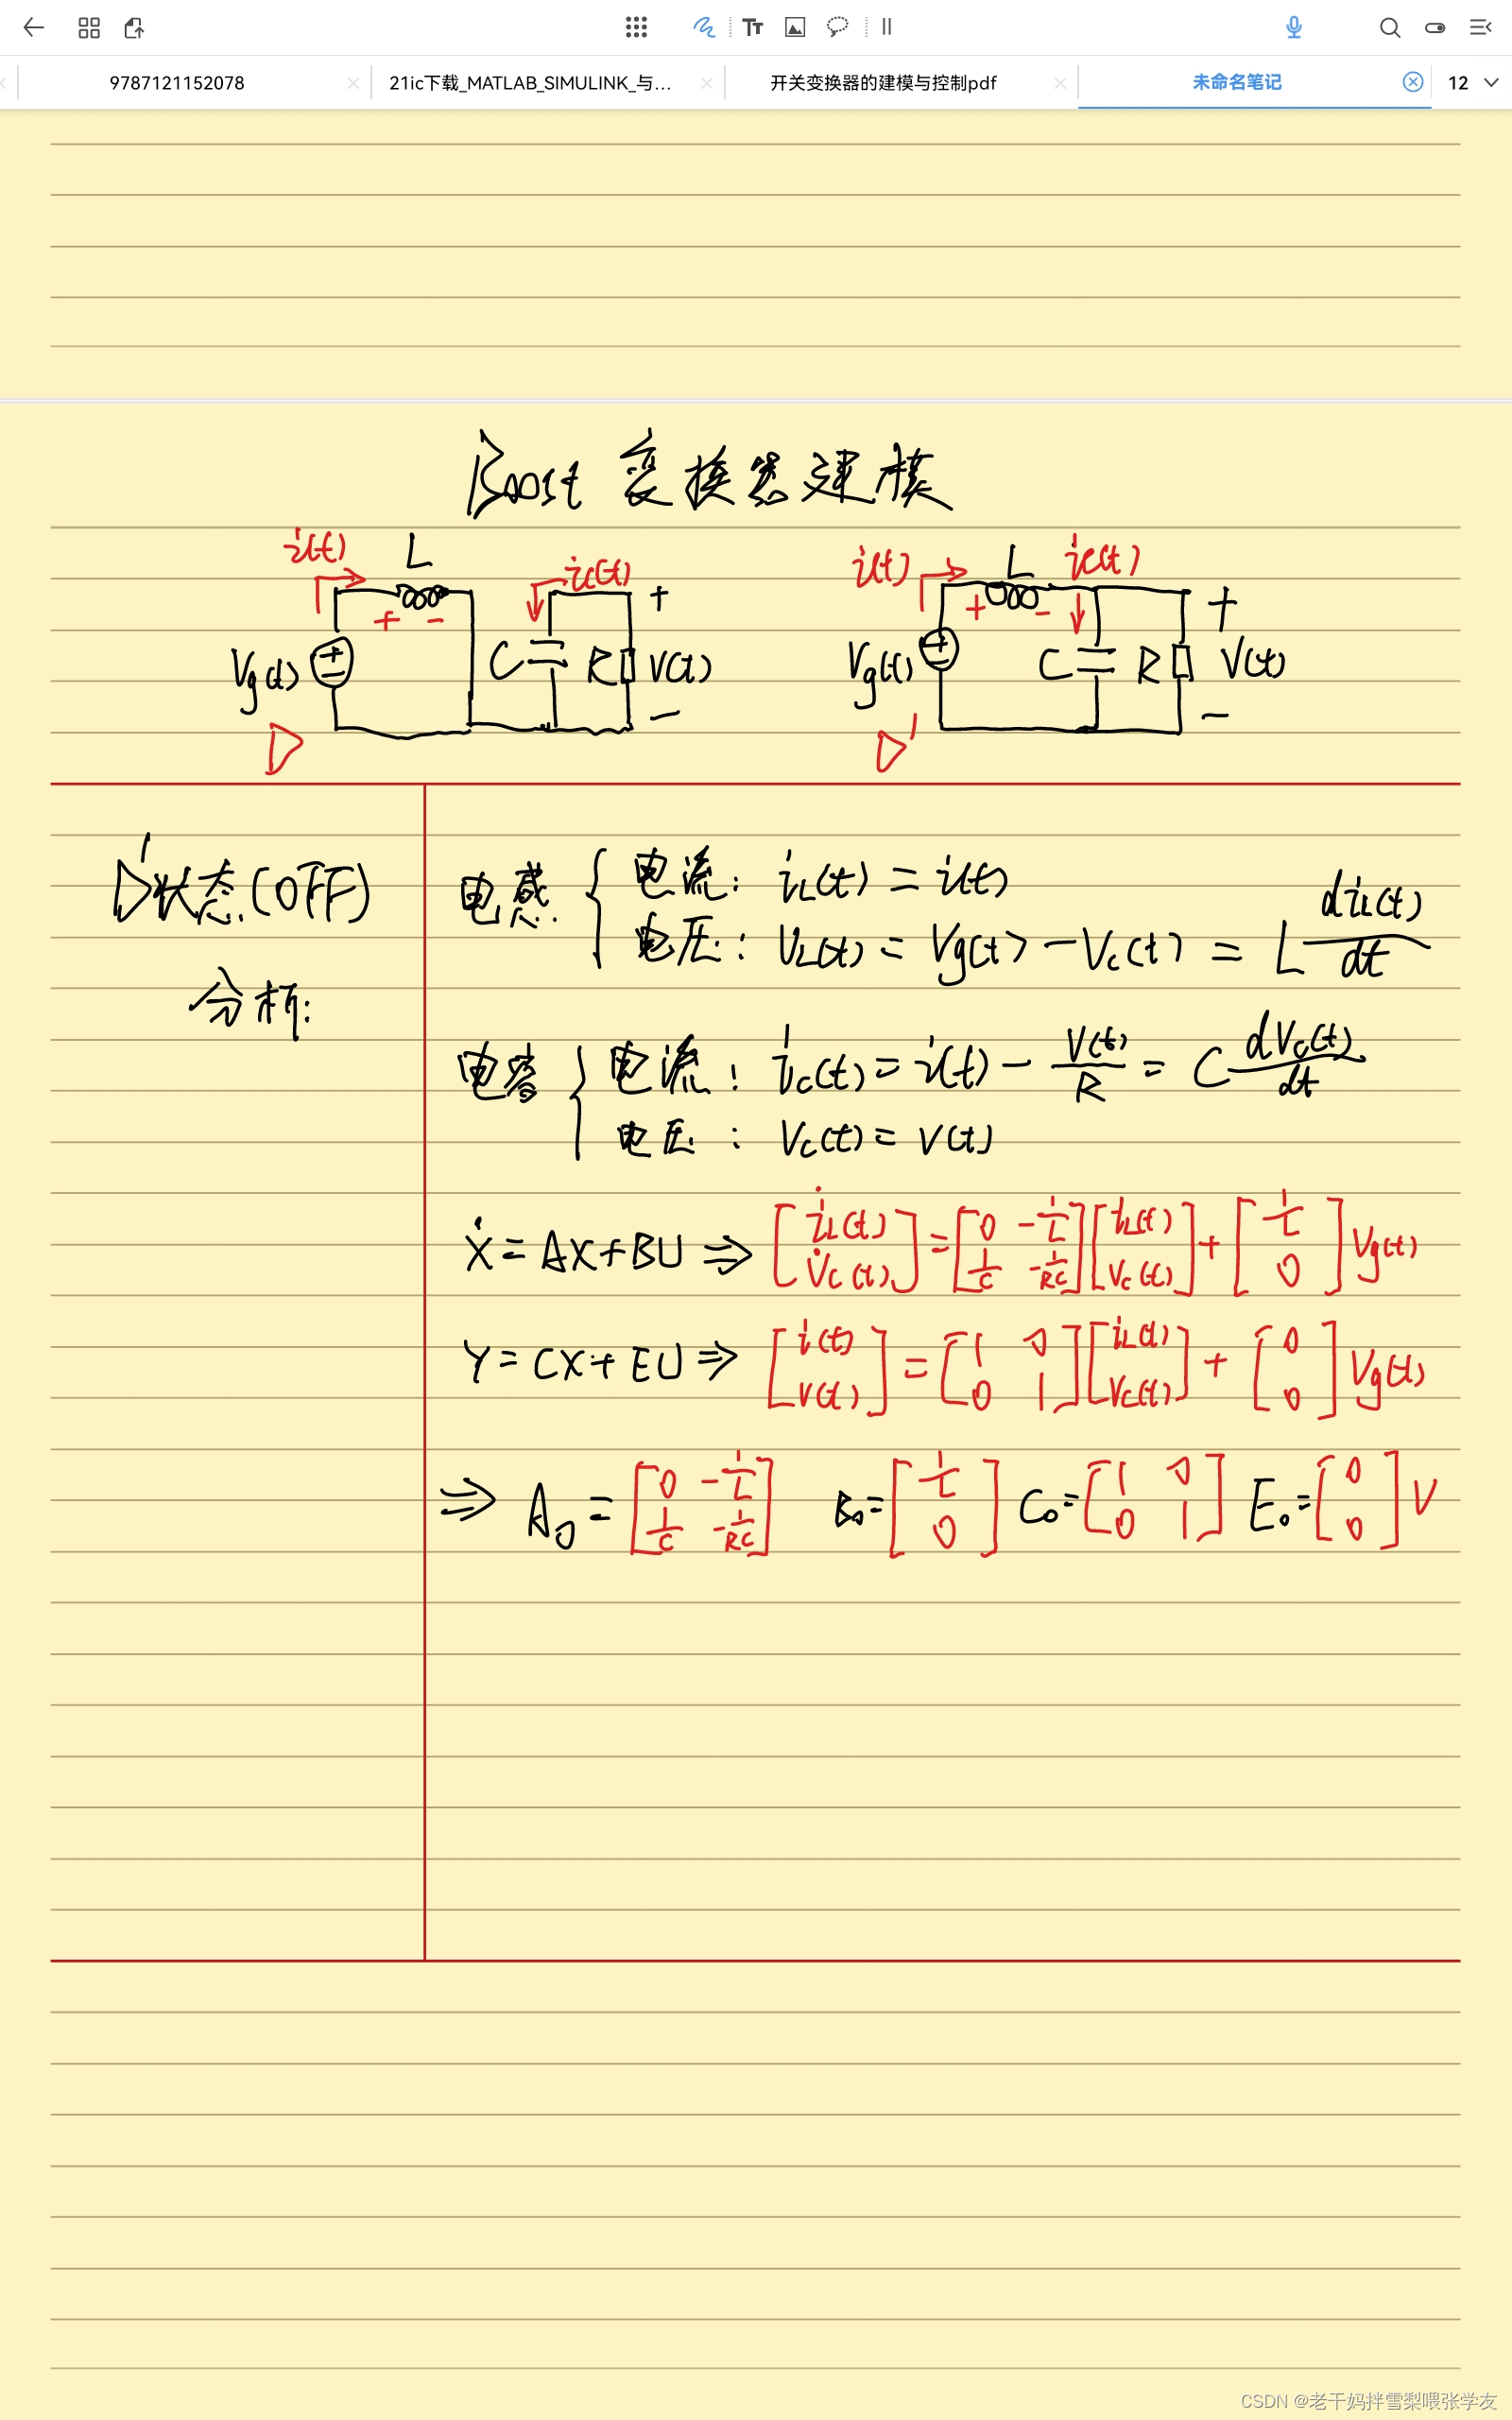 9787121152078
21ic下载_MATLAB_SIMULINK_与...
开关变换器的建模与控制pdf
未命名笔记
12
Boost 变换器建模
i(t) L ic(t) +
Vg(t) + - C R V(t)
D -
i(t) L ic(t) +
Vg(t) + - C R V(t)
D' -
D'状态(OFF)
分析:
电感 { 电流: iL(t) = i(t)
电压: VL(t) = Vg(t) - Vc(t) = L diL(t)/dt
电容 { 电流: ic(t) = i(t) - V(t)/R = C dVc(t)/dt
电压: Vc(t) = V(t)
Ẋ = AX + BU ⇒ [i̇L(t) V̇c(t)] = [0 -1/L 1/C -1/RC] [iL(t) Vc(t)] + [1/L 0] Vg(t)
Y = CX + EU ⇒ [i(t) V(t)] = [1 0 0 1] [iL(t) Vc(t)] + [0 0] Vg(t)
⇒ A0 = [0 -1/L 1/C -1/RC] B0 = [1/L 0] C0 = [1 0 0 1] E0 = [0 0] V
CSDN @老干妈拌雪梨喂张学友